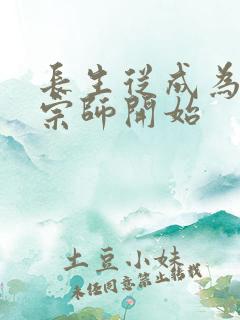 長生從成為
宗師開始
土豆小妹
未經同意禁止轉載